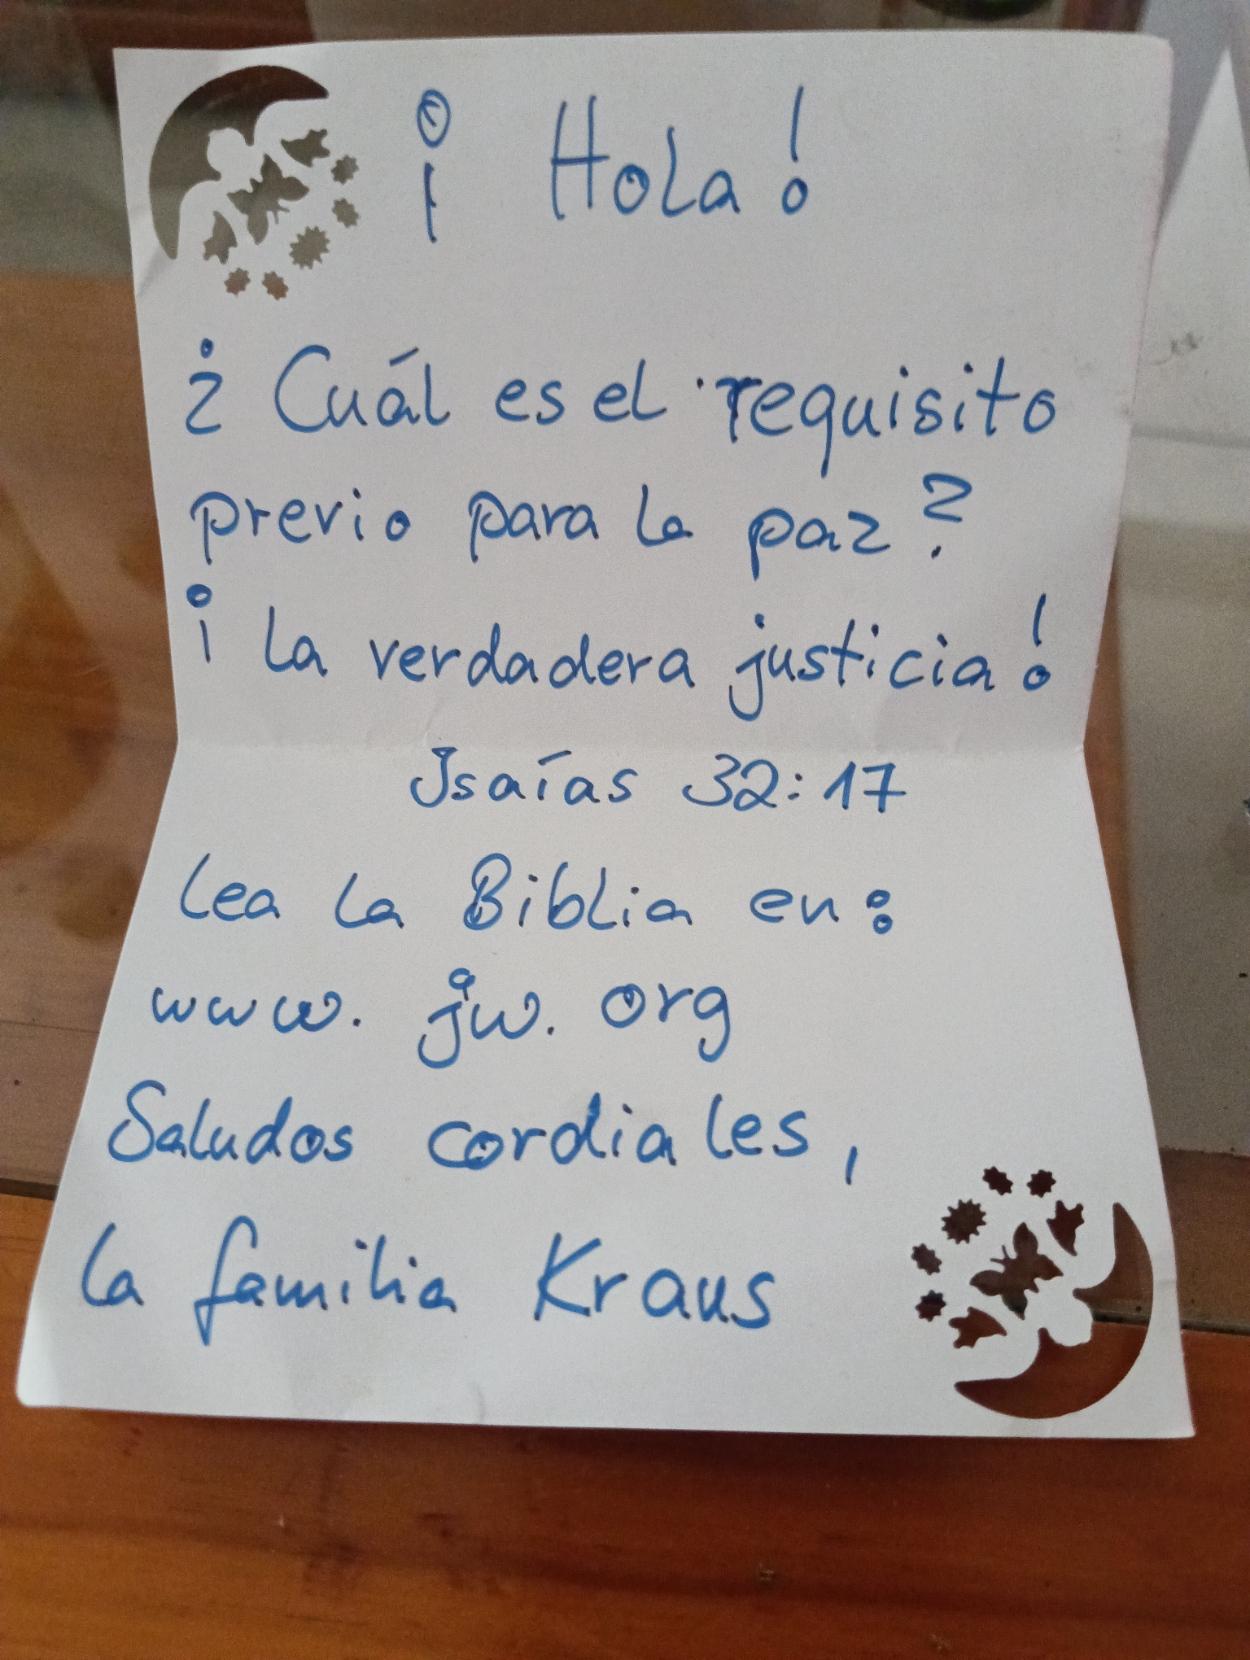 ¡Hola!
¿Cuál es el requisito
previo para la paz?
¡La verdadera justicia!
Isaías 32:17
Lea la Biblia en:
www.jw.org
Saludos cordiales,
la familia Kraus